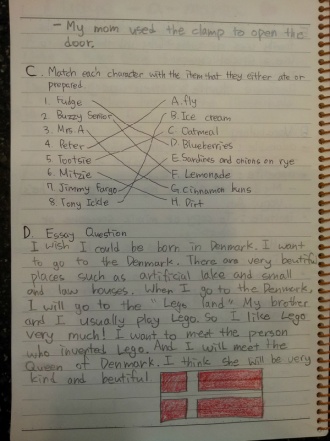 - My mom used the clamp to open the
door.
C. Match each character with the item that they either ate or
prepared
1. Fudge A. fly
2. Buzzy Senior B. Ice cream
3. Mrs A C. Oatmeal
4. Peter D. Blueberries
5. Tootsie E. Sardines and onions on rye
6. Mitzie F. Lemonade
7. Jimmy Fargo G. Cinnamon buns
8. Tony Ickle H. Dirt
D. Essay Question
I wish I could be born in Denmark. I want
to go to the Denmark. There are very beutiful
places such as artificial lake and small
and low houses. When I go to the Denmark,
I will go to the "Lego land" My brother
and I usually play Lego. So I like Lego
very much! I want to meet the person
who invented Lego. And I will meet the
Queen of Denmark. I think she will be very
kind and beutiful